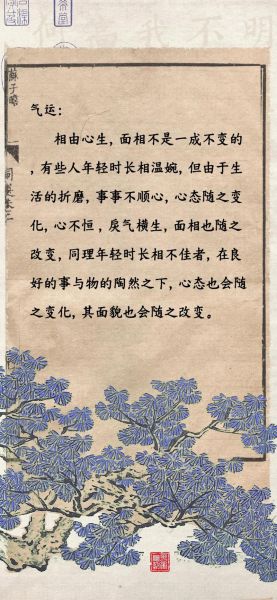 气运：
相由心生，面相不是一成不变的
，有些人年轻时长相温婉，但由于生
活的折磨，事事不顺心，心态随之变
化，心不恒，戾气横生，面相也随之
改变，同理年轻时长相不佳者，在良
好的事与物的陶然之下，心态也会随
之变化，其面貌也会随之改变。